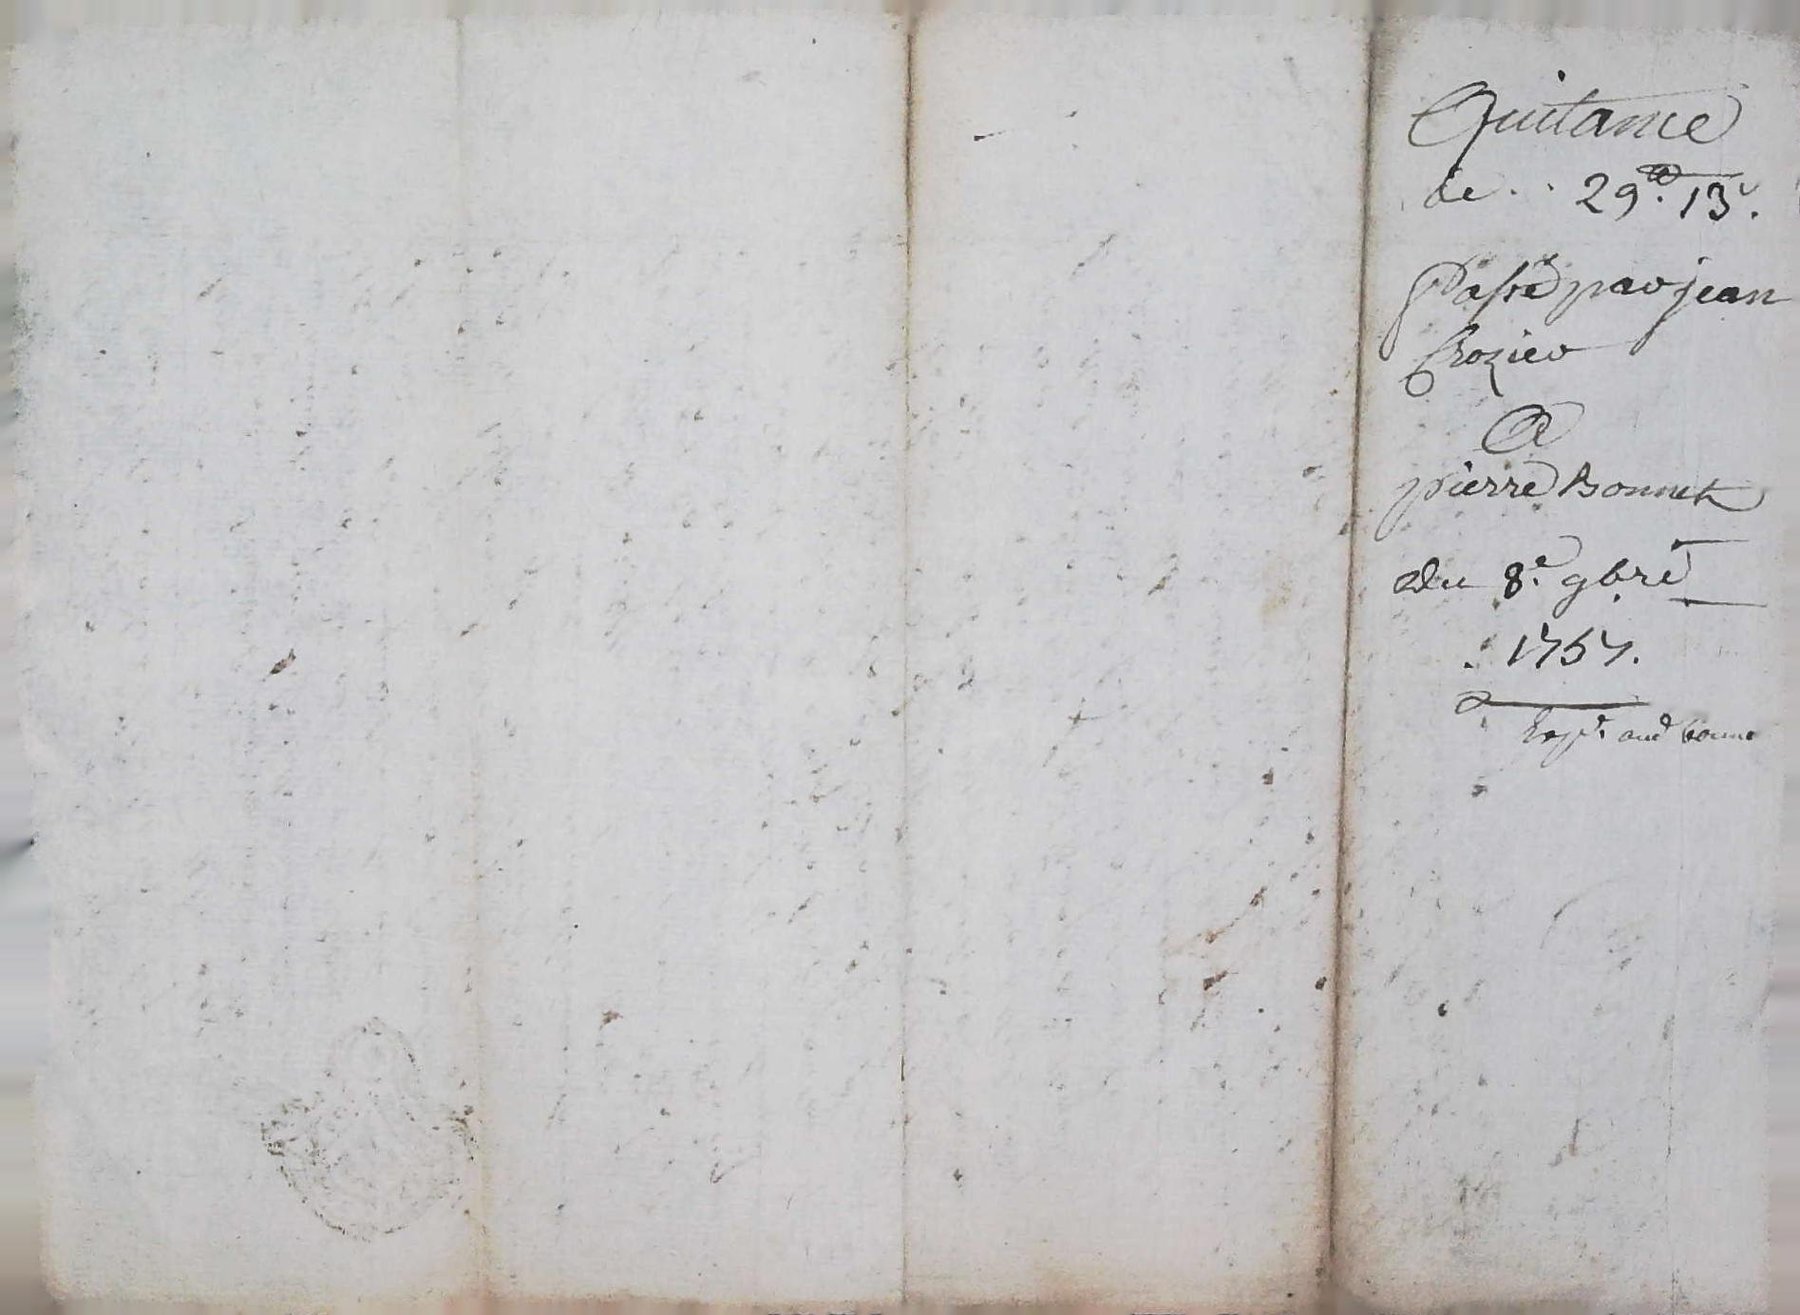 Quitance
de .. 29.ᵗᵗ 13ˢ.
Passé par jean
Crozier
A
pierre Bonnet
du 8.ᵉ 9bre
1757.